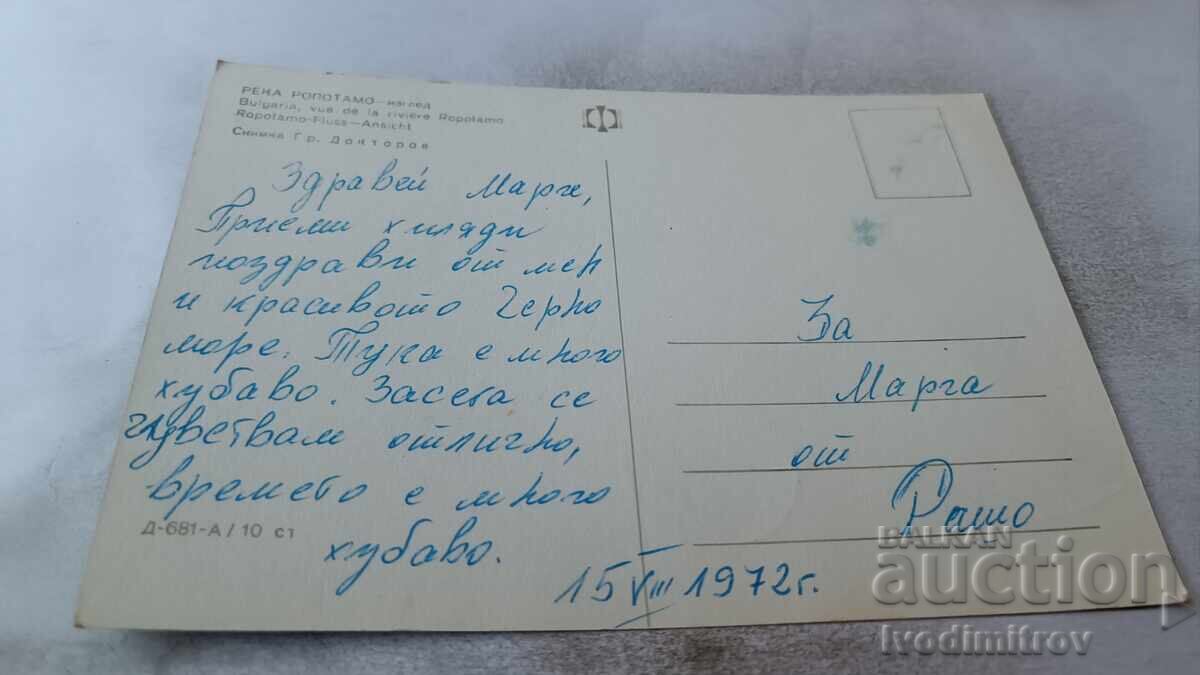 РЕКА РОПОТАМО — изглед
Bulgaria, vue de la rivière Ropotamo
Ropotamo-Fluss—Ansicht
Снимка Гр. Докторов
Здравей Марге,
Приеми хиляди
поздрави от мен
и красивото Черно
море. Тука е много
хубаво. Засега се
чувствам отлично,
времето е много
хубаво.
Д-681-А / 10 ст
15 VIII 1972 г.
За
Марга
от
Рашо
BALKAN
auction
Ivodimitrov